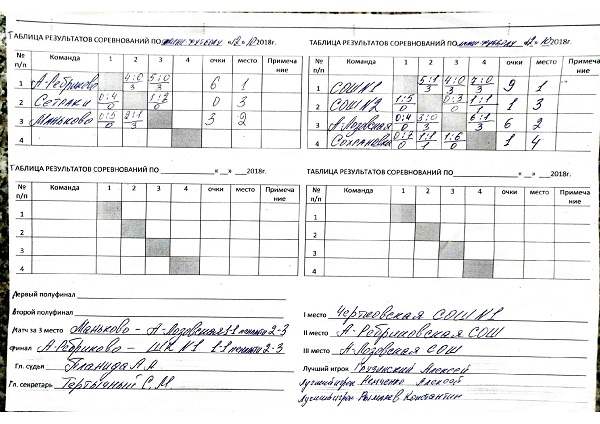 ТАБЛИЦА РЕЗУЛЬТАТОВ СОРЕВНОВАНИЙ ПО мини-футболу «12» 10 2018г.
№ п/п Команда 1 2 3 4 очки место Примечание
1 А-Ребриково 4:0/3 5:0/3 6 1
2 Сетраки 0:4/0 1:2/0 0 3
3 Маньково 0:5/0 2:1/3 3 2
4
ТАБЛИЦА РЕЗУЛЬТАТОВ СОРЕВНОВАНИЙ ПО мини-футболу «12» 10 2018г.
№ п/п Команда 1 2 3 4 очки место Примечание
1 СОШ N1 5:1/3 4:0/3 7:0/3 9 1
2 СОШ N2 1:5/0 0:3/0 1:1/1 1 3
3 А-Лозовская 0:4/0 3:0/3 6:1/3 6 2
4 Сохрановка 0:7/0 1:1/1 1:6/0 1 4
ТАБЛИЦА РЕЗУЛЬТАТОВ СОРЕВНОВАНИЙ ПО «__» 2018г.
№ п/п Команда 1 2 3 4 очки место Примечание
1
2
3
4
ТАБЛИЦА РЕЗУЛЬТАТОВ СОРЕВНОВАНИЙ ПО «__» 2018г.
№ п/п Команда 1 2 3 4 очки место Примечание
1
2
3
4
Первый полуфинал
Второй полуфинал
Матч за 3 место Маньково - А-Лозовская 1:1 пенальти 2-3
Финал А-Ребриково - ШК N1 1:1 пенальти 2-3
Гл. судья Планида Л.А
Гл. секретарь Тертышный С.М.
I место Чертковская СОШ N1
II место А-Ребриковская СОШ
III место А-Лозовская СОШ
Лучший игрок Грузинский Алексей
Лучший игрок Немченко Алексей
Лучший игрок Константин